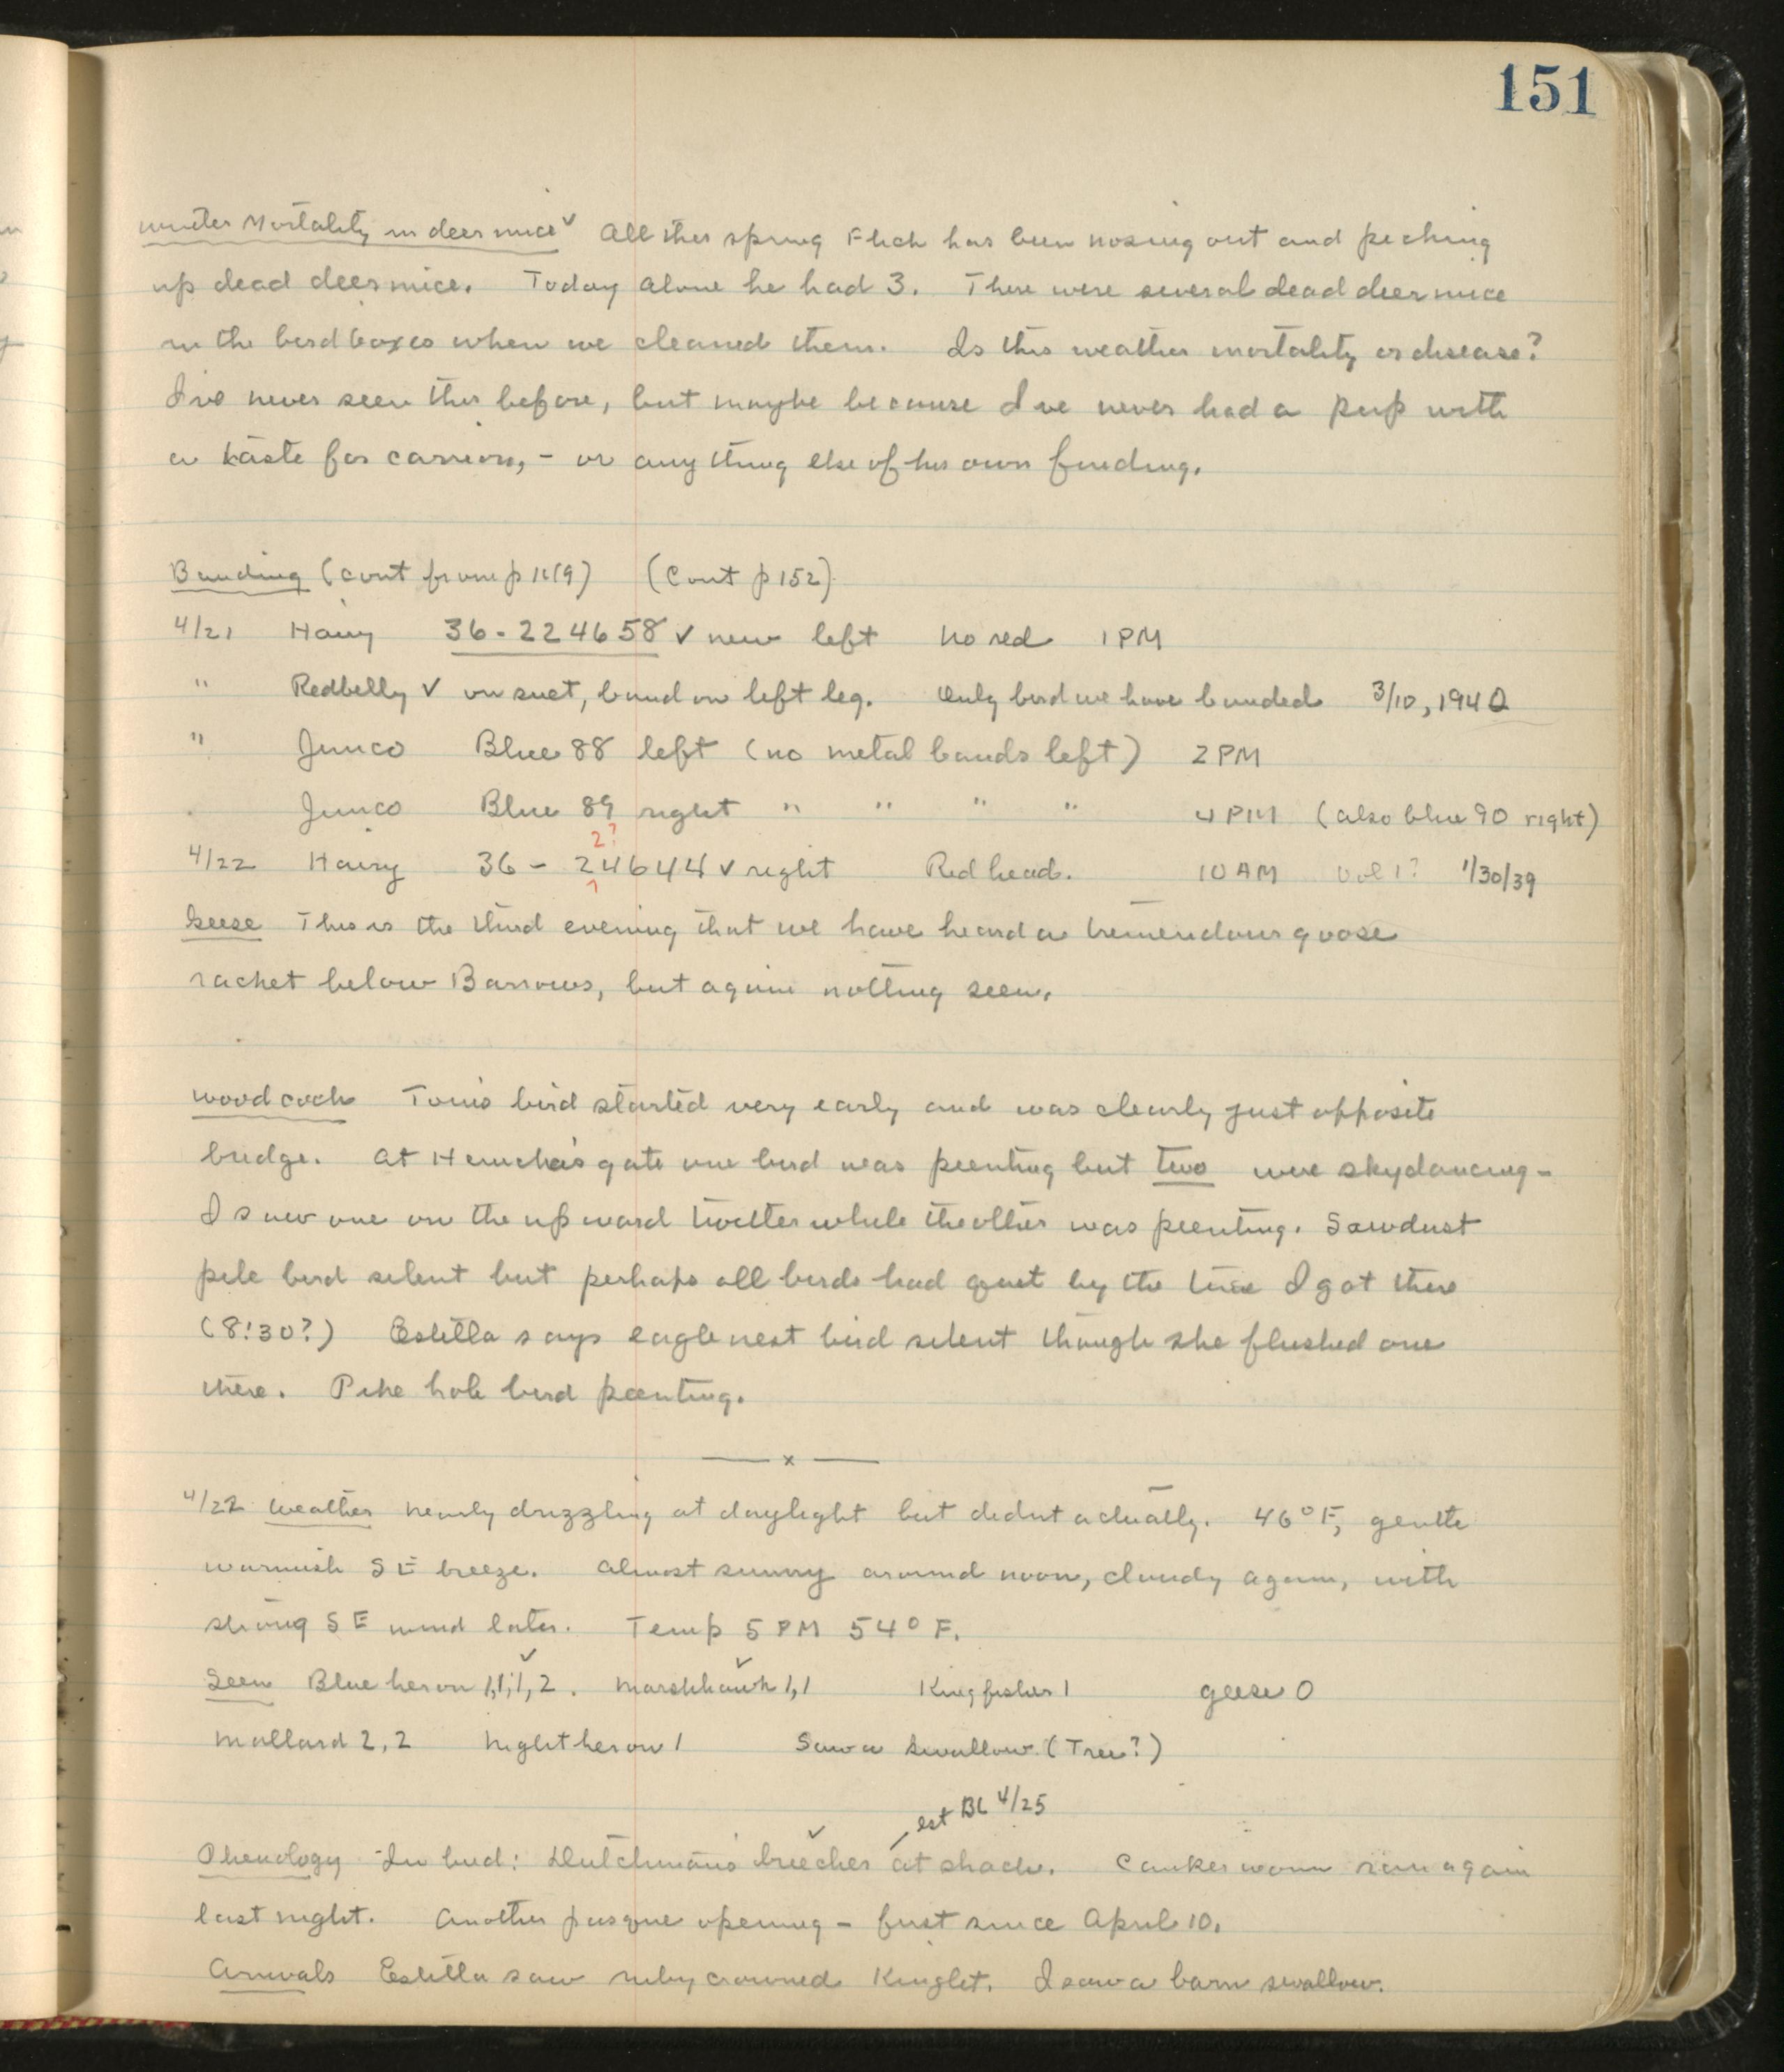 151
Winter Mortality in deermice ✓ All this spring Flick has been nosing out and picking
up dead deermice. Today alone he had 3. There were several dead deermice
in the bird boxes when we cleaned them. Is this weather mortality or disease?
I've never seen this before, but maybe because I've never had a pup with
a taste for carrion, - or anything else of his own finding.
Banding (cont from p 149) (Cont p 152)
4/21 Hairy 36-224658 ✓ new left No red 1 PM
" Redbelly ✓ on suet, band on left leg. Only bird we have banded 3/10, 1940
" Junco Blue 88 left (no metal bands left) 2 PM
Junco Blue 89 right " " " " 4 PM (also blue 90 right)
2?
4/22 Hairy 36 - 24644 ✓ right Red head. 10 AM Vol 1? 1/30/39
Geese This is the third evening that we have heard a tremendous goose
racket below Barrows, but again nothing seen.
Woodcock Tom's bird started very early and was clearly just opposite
bridge. At gate one bird was peenting but two were skydancing -
I saw one on the upward twitter while the other was peenting. Sawdust
pile bird silent but perhaps all birds had quit by the time I got there
(8:30?) Estella says eagle nest bird silent though she flushed one
there. Pike hole bird peenting.
— x —
4/22 Weather Nearly drizzling at daylight but didnt actually. 46° F, gentle
warmish SE breeze. Almost sunny around noon, cloudy again, with
strong SE wind later. Temp 5 PM 54° F.
Seen Blue heron 1,1,1,1, 2. ✓ Marshhawk 1,1 ✓ Kingfisher 1 geese 0
Mallard 2, 2 Night heron 1 Saw a swallow (Tree?)
est BL 4/25
Phenology In bud: Dutchman's breeches ✓ at shack. Cankerworm ran again
last night. Another pasque opening - first since April 10.
Arrivals Estella saw ruby crowned Kinglet. I saw a barn swallow.